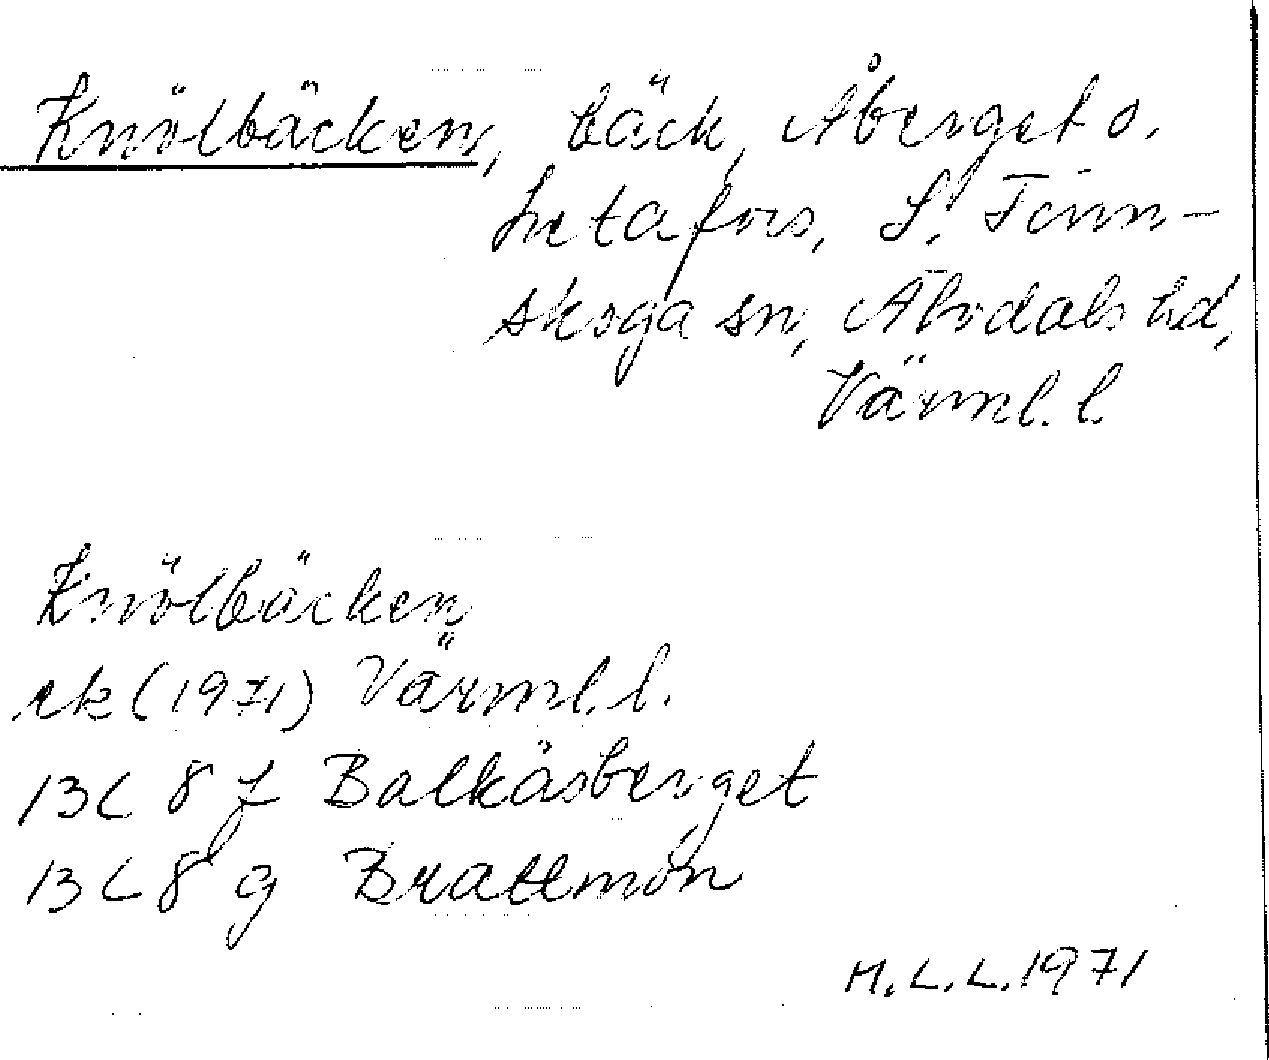 Knölbäcken, bäck, Åberget o.
Letafors, S. Finn-
skoga sn, Älvdals hd,
Värml. l.
Knölbäcken
ek (1971) Värml. l.
13C 8 f Balkåsberget
13C 8 g Brattmon
M.L.L. 1971